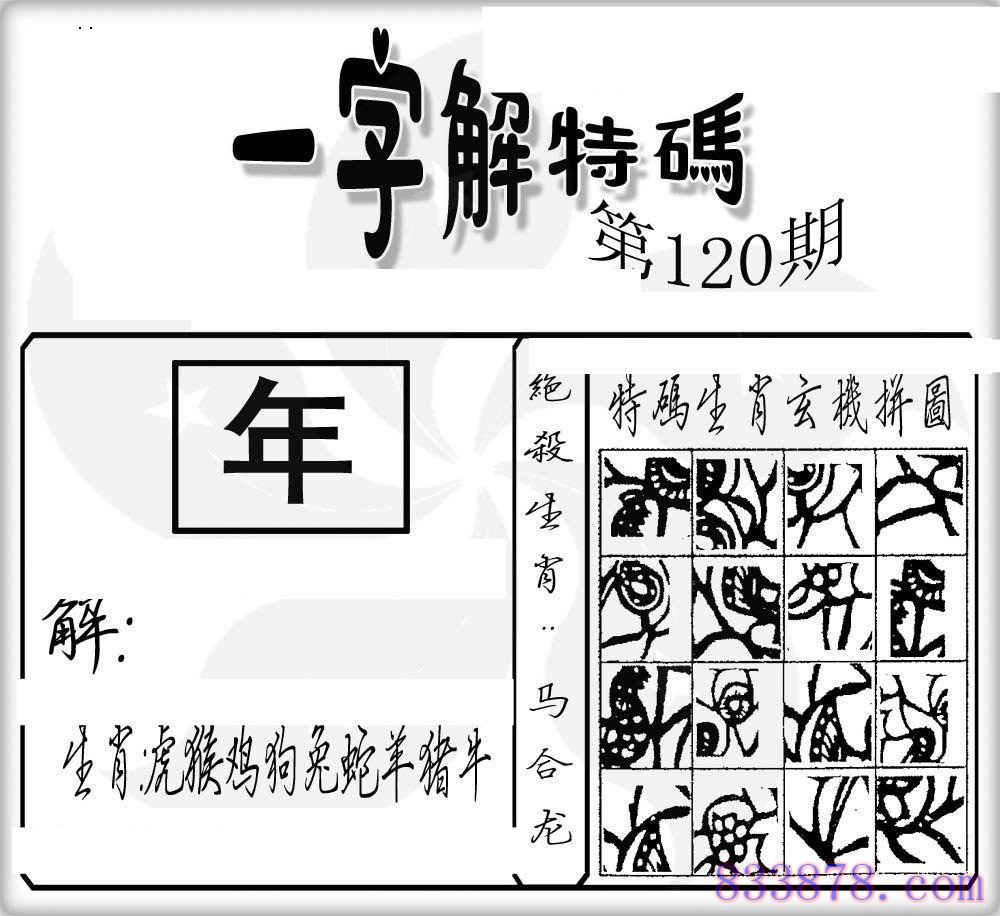 一字解特碼
第120期
年
解:
生肖:虎猴鸡狗兔蛇羊猪牛
絕殺生肖:马合龙
特碼生肖玄機拼圖
833878.com